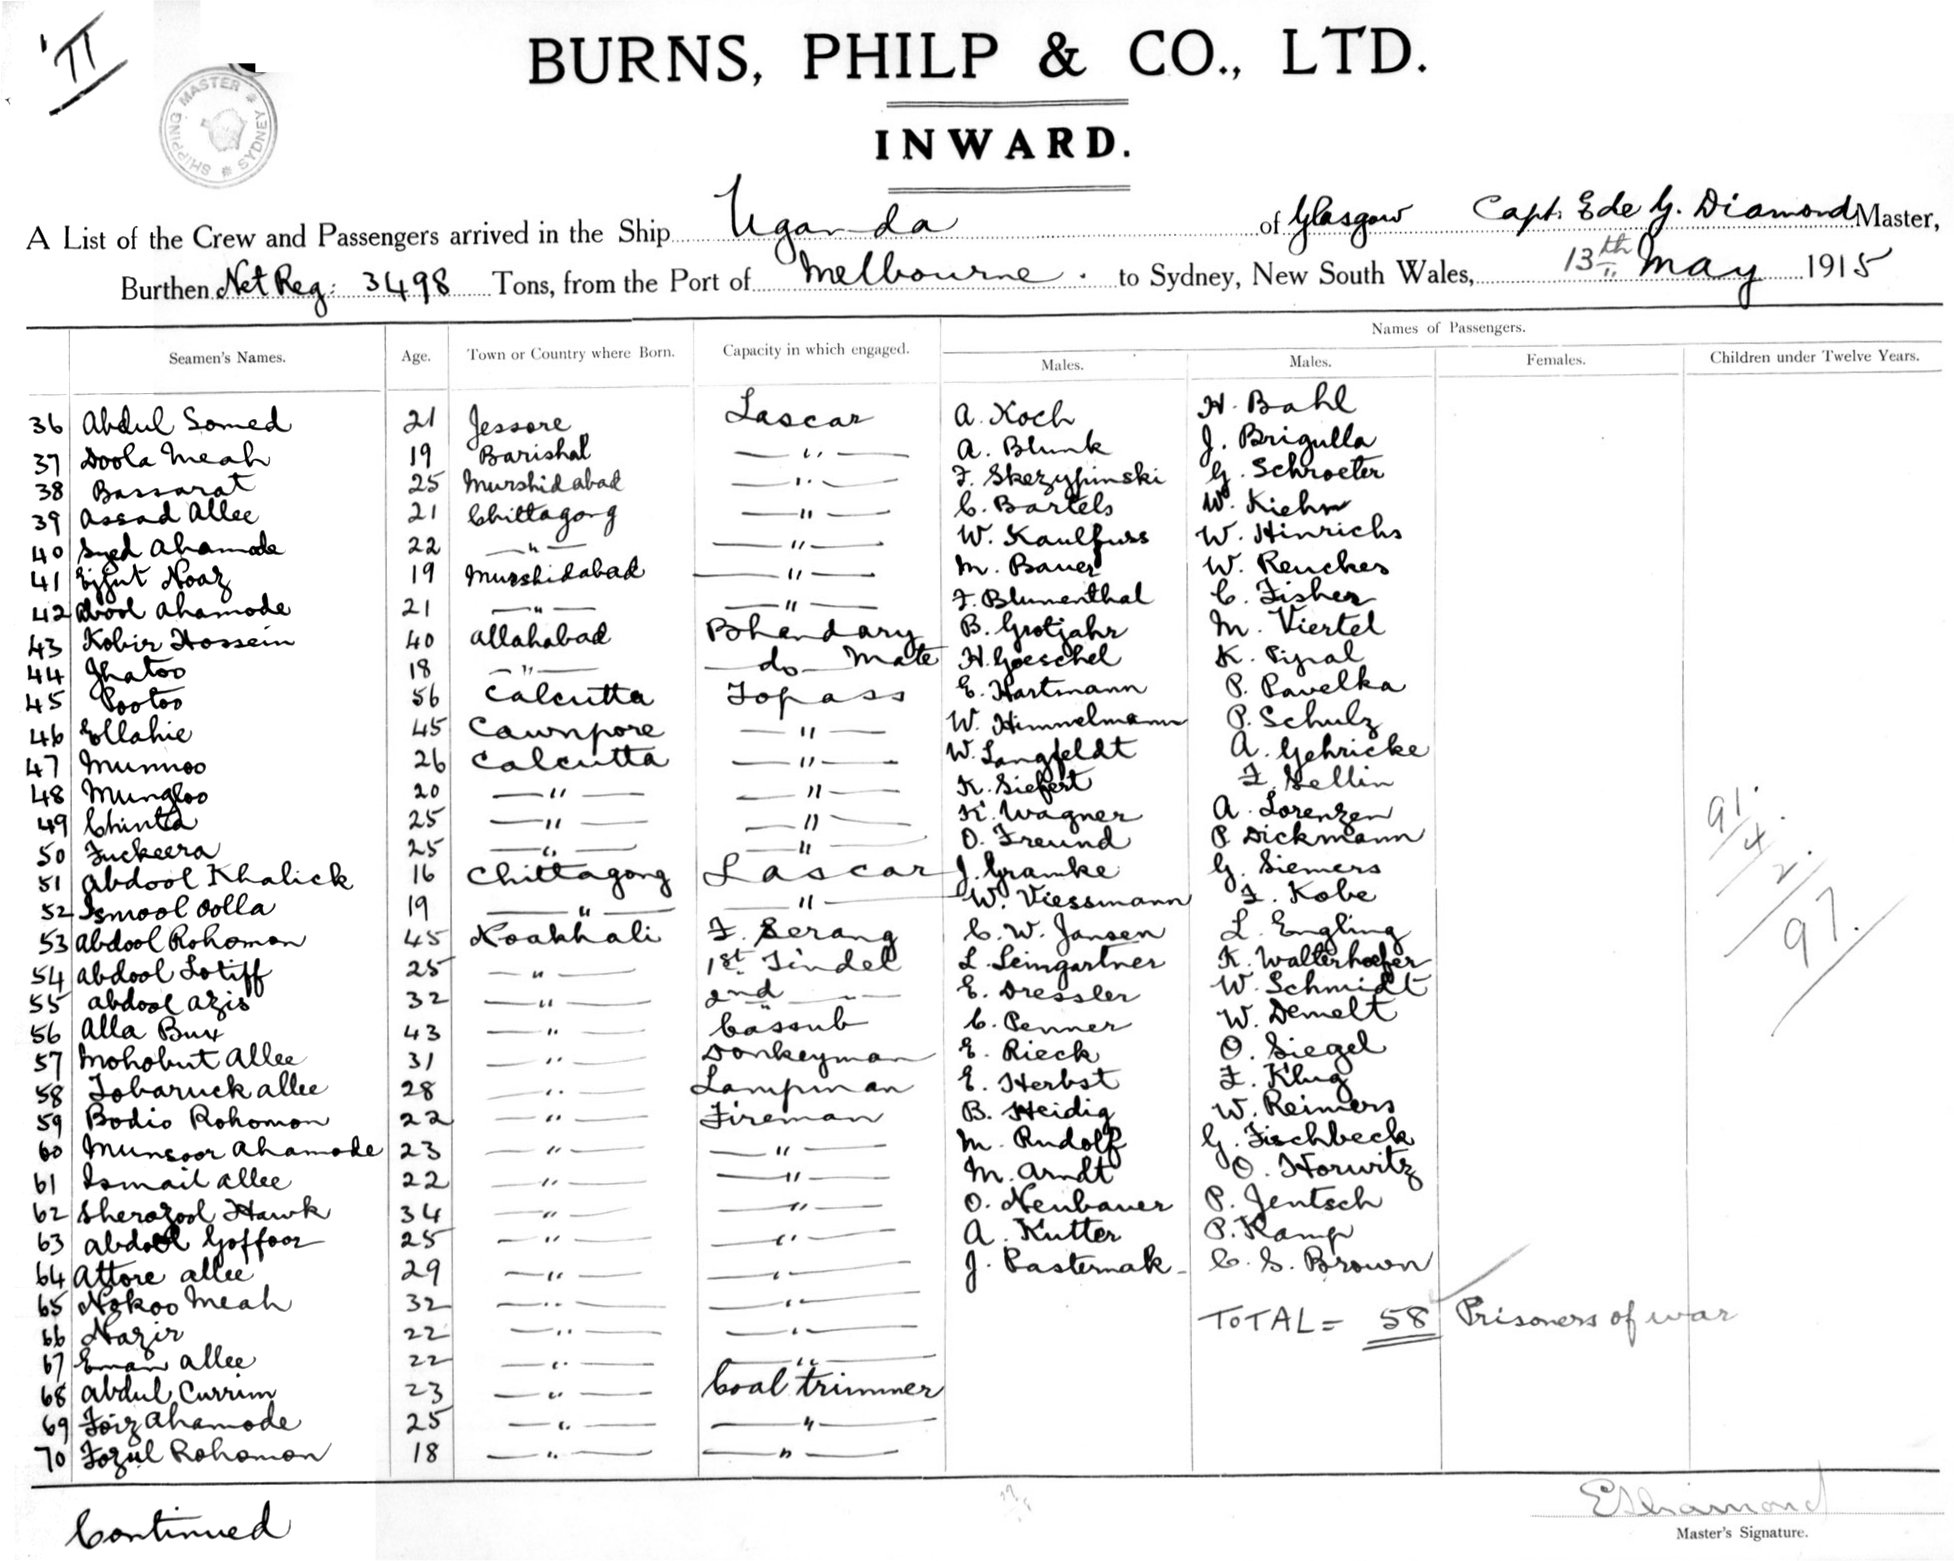 '11
SHIPPING MASTER * SYDNEY *
BURNS, PHILP & CO., LTD.
INWARD.
A List of the Crew and Passengers arrived in the Ship Uganda of Glasgow Capt. E de G. Diamond Master,
Burthen Net Reg: 3498 Tons, from the Port of Melbourne. to Sydney, New South Wales, 13th May 1915
Names of Passengers.
Seamen's Names. Age. Town or Country where Born. Capacity in which engaged. Males. Males. Females. Children under Twelve Years.
36 Abdul Somed 21 Jessore Lascar A. Koch H. Bahl
37 Doola Meah 19 Barishal — " — A. Blunk J. Brigulla
38 Bassarat 25 Murshidabad — " — F. Skezypinski G. Schroeter
39 Assad Allee 21 Chittagong — " — C. Bartels W. Kiehn
40 Syed Ahamode 22 — " — — " — W. Kaulfuss W. Hinrichs
41 Ejjut Noaz 19 Murshidabad — " — M. Bauer W. Renckes
42 Abool Ahamode 21 — " — — " — F. Blumenthal C. Fisher
43 Kobir Hossein 40 Allahabad Bhandary B. Grotjahr M. Viertel
44 Jhatoo 18 — " — — do — Mate H. Goeschel K. Pipal
45 Pootoo 56 Calcutta Topass E. Hartmann P. Pavelka
46 Ellahie 45 Cawnpore — " — W. Himmelmann P. Schulz
47 Munnoo 26 Calcutta — " — W. Langfeldt A. Gehricke
48 Mungloo 20 — " — — " — K. Siefert F. Sellin
49 Chinta 25 — " — — " — K. Wagner A. Lorenzen
50 Fuckeera 25 — " — — " — O. Freund P. Dickmann
51 Abdool Khalick 16 Chittagong Lascar J. Gramke G. Siemers
52 Ismool Oolla 19 — " — — " — W. Viessmann F. Kobe
53 Abdool Rohomon 45 Noakhali F. Serang C. W. Jansen L. Engling
54 Abdool Lotiff 25 — " — 1st. Tindel L. Leimgartner K. Walterhoefer
55 Abdool Azis 32 — " — 2nd — " — E. Dressler W. Schmidt
56 Alla Bux 43 — " — Cassub C. Penner W. Demelt
57 Mohobut Allee 31 — " — Donkeyman E. Rieck O. Siegel
58 Tobaruck Allee 28 — " — Lampman E. Herbst F. Klug
59 Bodio Rohomon 22 — " — Fireman B. Heidig W. Reimers
60 Munsoor Ahamode 23 — " — — " — M. Rudolf G. Fischbeck
61 Ismail Allee 22 — " — — " — M. Arndt O. Horwitz
62 Sherazool Hawk 34 — " — — " — O. Neubauer P. Jentsch
63 Abdool Goffoor 25 — " — — " — A. Kutter P. Kamp
64 Attore Allee 29 — " — — " — J. Pasternak C. S. Brown
65 Nokoo Meah 32 — " — — " —
TOTAL = 58 Prisoners of war
66 Nazir 22 — " — — " —
67 Eman Allee 22 — " — — " —
68 Abdul Currim 23 — " — Coal trimmer
69 Foiz Ahamode 25 — " — — " —
70 Fozul Rohomon 18 — " — — " —
91.
4.
2.
97.
Continued
EDiamond
Master's Signature.